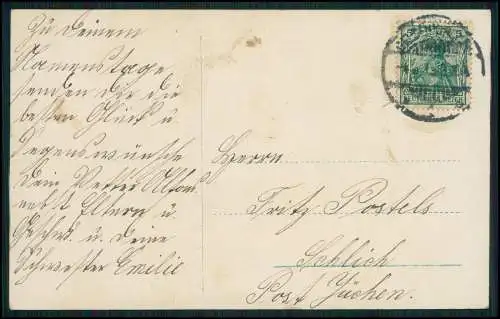 Zu Deinem
Namenstage
senden Dir die
besten Glück u.
Segenswünsche
Dein Vetter Alfons
nebst Eltern u.
Geschw. u. Deine
Schwester Emilie
Herrn
Fritz Postels
Schlich
Post Jüchen.